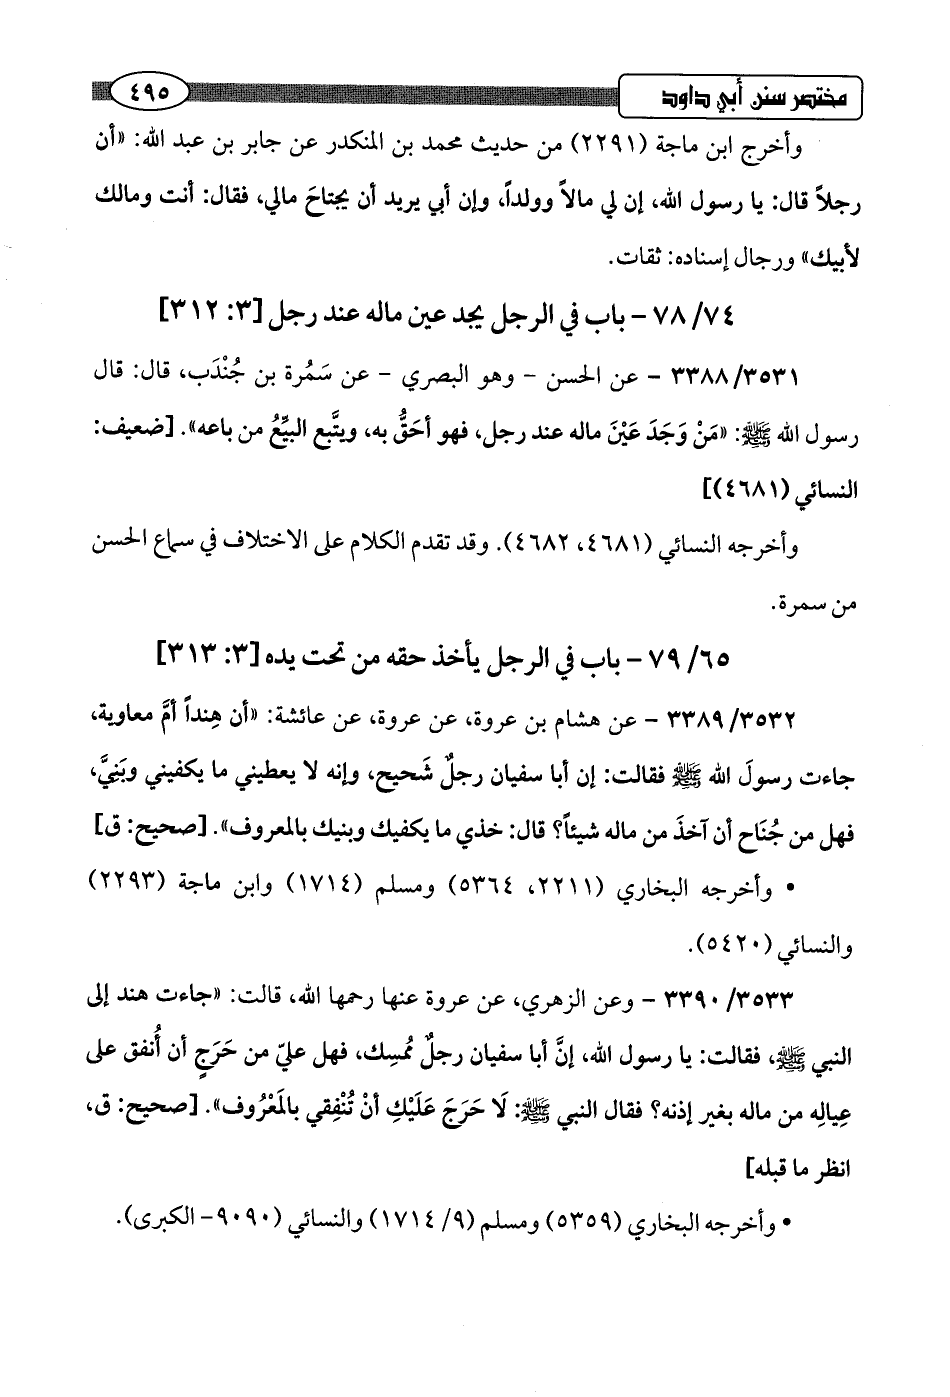 مختصر سنن أبي داود ٤٩٥
وأخرج ابن ماجة (٢٢٩١) من حديث محمد بن المنكدر عن جابر بن عبد الله: «أن
رجلاً قال: يا رسول الله، إن لي مالاً وولداً، وإن أبي يريد أن يجتاحَ مالي، فقال: أنت ومالك
لأبيك» ورجال إسناده: ثقات.
٧٤/ ٧٨ - باب في الرجل يجد عين ماله عند رجل [٣: ٣١٢]
٣٥٣١/ ٣٣٨٨ - عن الحسن - وهو البصري - عن سَمُرة بن جُنْدَب، قال: قال
رسول الله ﷺ: «مَنْ وَجَدَ عَيْنَ ماله عند رجل، فهو أحَقُّ به، ويتَّبع البيِّعُ من باعه». [ضعيف:
النسائي (٤٦٨١)]
وأخرجه النسائي (٤٦٨١، ٤٦٨٢). وقد تقدم الكلام على الاختلاف في سماع الحسن
من سمرة.
٦٥/ ٧٩ - باب في الرجل يأخذ حقه من تحت يده [٣: ٣١٣]
٣٥٣٢/ ٣٣٨٩ - عن هشام بن عروة، عن عروة، عن عائشة: «أن هِنداً أمَّ معاوية،
جاءت رسولَ الله ﷺ فقالت: إن أبا سفيان رجلٌ شَحيح، وإنه لا يعطيني ما يكفيني وبَنِيَّ،
فهل من جُنَاح أن آخذَ من ماله شيئاً؟ قال: خذي ما يكفيك وبنيك بالمعروف». [صحيح: ق]
• وأخرجه البخاري (٢٢١١، ٥٣٦٤) ومسلم (١٧١٤) وابن ماجة (٢٢٩٣)
والنسائي (٥٤٢٠).
٣٥٣٣/ ٣٣٩٠ - وعن الزهري، عن عروة عنها رحمها الله، قالت: «جاءت هند إلى
النبي ﷺ، فقالت: يا رسول الله، إنَّ أبا سفيان رجلٌ مُمسِك، فهل عليّ من حَرَجٍ أن أُنفق على
عِيالِه من ماله بغير إذنه؟ فقال النبي ﷺ: لَا حَرَجَ عَلَيْكِ أنْ تُنْفِقي بالمَعْرُوف». [صحيح: ق،
انظر ما قبله]
• وأخرجه البخاري (٥٣٥٩) ومسلم (٩/ ١٧١٤) والنسائي (٩٠٩٠- الكبرى).